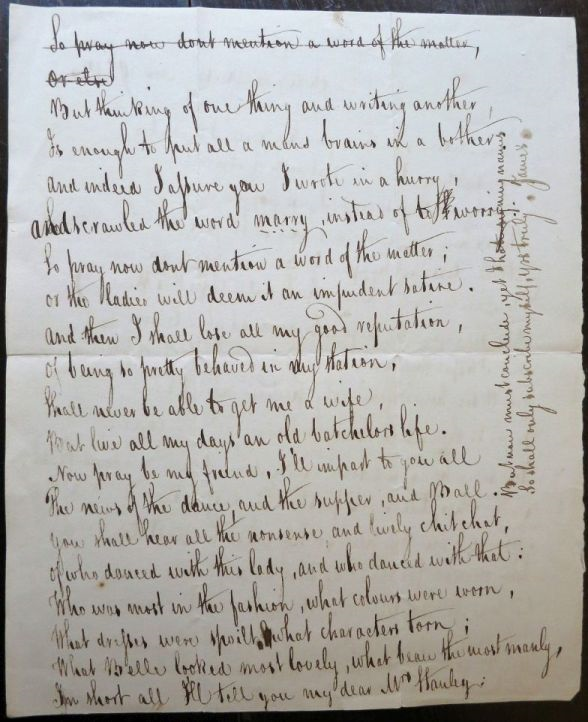 So pray now dont mention a word of the matter,
Or else
But thinking of one thing and writing another,
Is enough to put all a mans brains in a bother
and indeed I assure you I wrote in a hurry,
and scrawled the word marry, instead of worry.
So pray now dont mention a word of the matter;
or the ladies will deem it an impudent satire.
and then I shall lose all my good reputation,
Of being so pretty behaved in my station,
Shall never be able to get me a wife,
But live all my days an old batchelors life.
Now pray be my friend, I'll impart to you all
The news of the dance, and the supper, and Ball.
You shall hear all the nonsense and lively chit chat,
of who danced with this lady, and who danced with that:
Who was most in the fashion, what colours were worn,
What dresses were spoilt, what characters torn;
What Belle looked most lovely, what beau the most manly,
In short all I'll tell you my dear Mrs Stanley.
But now must conclude, yet my name is
So shall only subscribe myself, yrs truly James